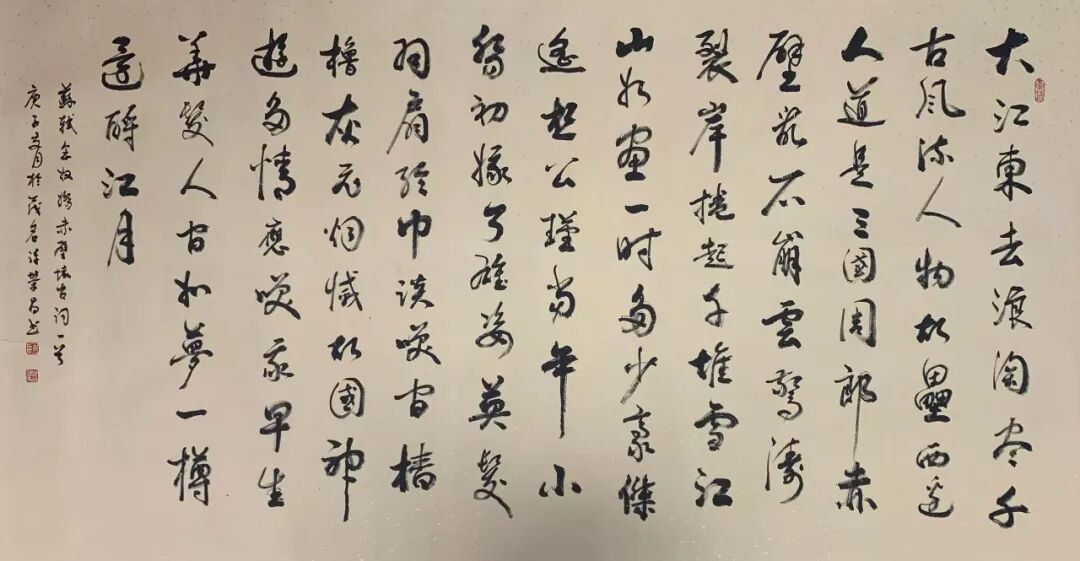 大江東去浪淘盡千
古風流人物故壘西邊
人道是三國周郎赤
壁亂石崩雲驚濤
裂岸捲起千堆雪江
山如畫一時多少豪傑
遙想公瑾當年小
喬初嫁了雄姿英髮
羽扇綸巾談笑間檣
櫓灰飛烟滅故國神
遊多情應笑我早生
華髮人間如夢一樽
還酹江月
蘇軾念奴嬌赤壁懷古詞一首
庚子夏月於茂名